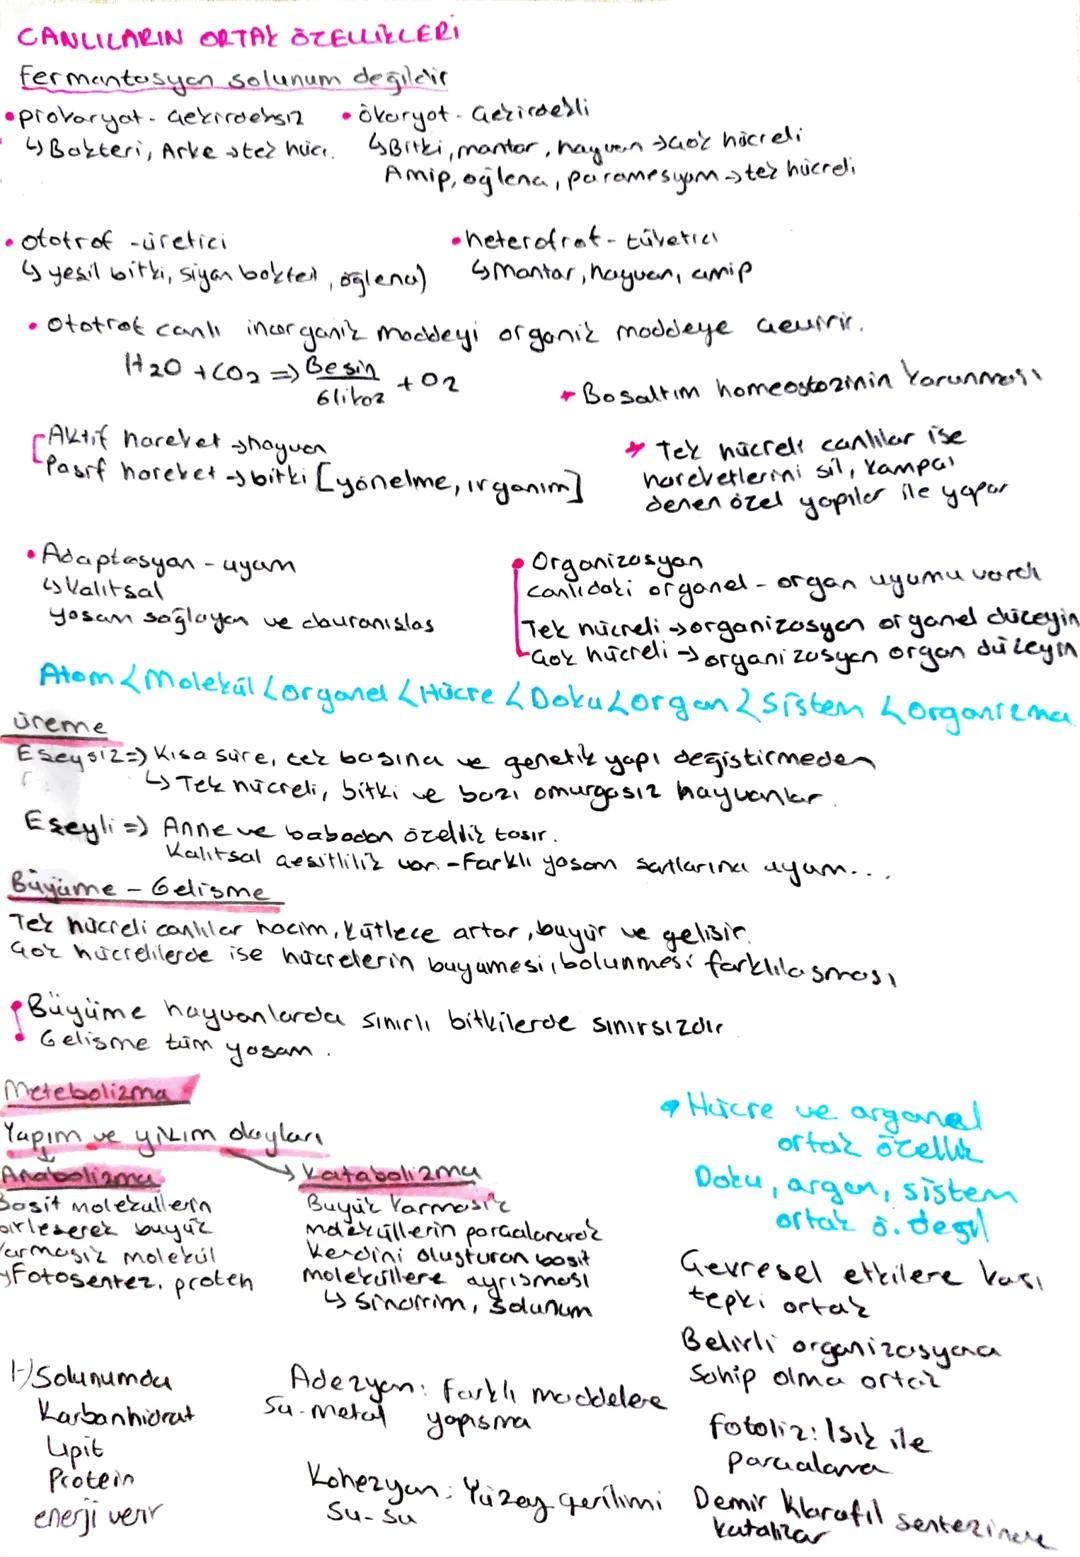 CANLILARIN ORTAK ÖZELLİKLERİ
fermantasyon solunum değildir
• prokaryot - çekirdeksiz
↳ Bakteri, Arke → tek hücr.
• ökaryot - Çekirdekli
↳ Bitki, mantar, hayvan → çok hücreli
Amip, öğlena, paramesyum → tek hücreli
• ototrof - üretici
↳ yeşil bitki, siyan bakteri, öğlena)
• heterofrot - tüketici
↳ Mantar, hayvan, amip
• Ototrof canlı inorganik maddeyi organik maddeye çevirir.
H2O + CO2 => Besin + O2
Glikoz
* Boşaltım homeostazinin korunması
Aktif hareket → hayvan
Pasif hareket → bitki [yönelme, ırganım]
* Tek hücreli canlılar ise
hareketlerini sil, kampçı
denen özel yapılar ile yapar
• Adaptasyon - uyum
↳ Kalıtsal
yaşam sağlayan ve davranışlas
• Organizasyon
canlıdaki organel - organ uyumu vardı
Tek hücreli → organizasyon organel düzeyin
Çok hücreli → organizasyon organ düzeyin
Atom < Molekül < organel < Hücre < Doku < organ < Sistem < organizma
üreme
Eşeysiz => Kısa süre, tek başına ve genetik yapı değiştirmeden
↳ Tek hücreli, bitki ve bazı omurgasız hayvanlar.
Eşeyli => Anne ve babadan özellik taşır.
Kalıtsal çeşitlilik var - Farklı yaşam şartlarına uyum...
Büyüme - Gelişme
Tek hücreli canlılar hacim, kütlece artar, büyür ve gelişir.
Çok hücrelilerde ise hücrelerin büyümesi, bölünmesi farklılaşması
• Büyüme hayvanlarda sınırlı bitkilerde sınırsızdır
• Gelişme tüm yaşam.
Metebolizma
Yapım ve yıkım olayları
Anabolizma
Basit moleküllerin
birleşerek büyük
karmaşık molekül
↳ Fotosentez, protein
→ Katabolizma
Büyük karmaşık
moleküllerin parçalanarak
kendini oluşturan basit
moleküllere ayrışması
↳ sindirim, solunum
• Hücre ve organel
ortak özellik
Doku, organ, sistem
ortak ö. değil
Çevresel etkilere karşı
tepki ortak
Belirli organizasyona
Sahip olma ortak
1-) Solunumda
Karbonhidrat
Lipit
Protein
enerji verir
Adezyon: farklı maddelere
Su-metal yapışma
Kohezyon: Yüzey gerilimi
Su-su
fotoliz: Işık ile
parçalama
Demir klorofil sentezinde
katalizör